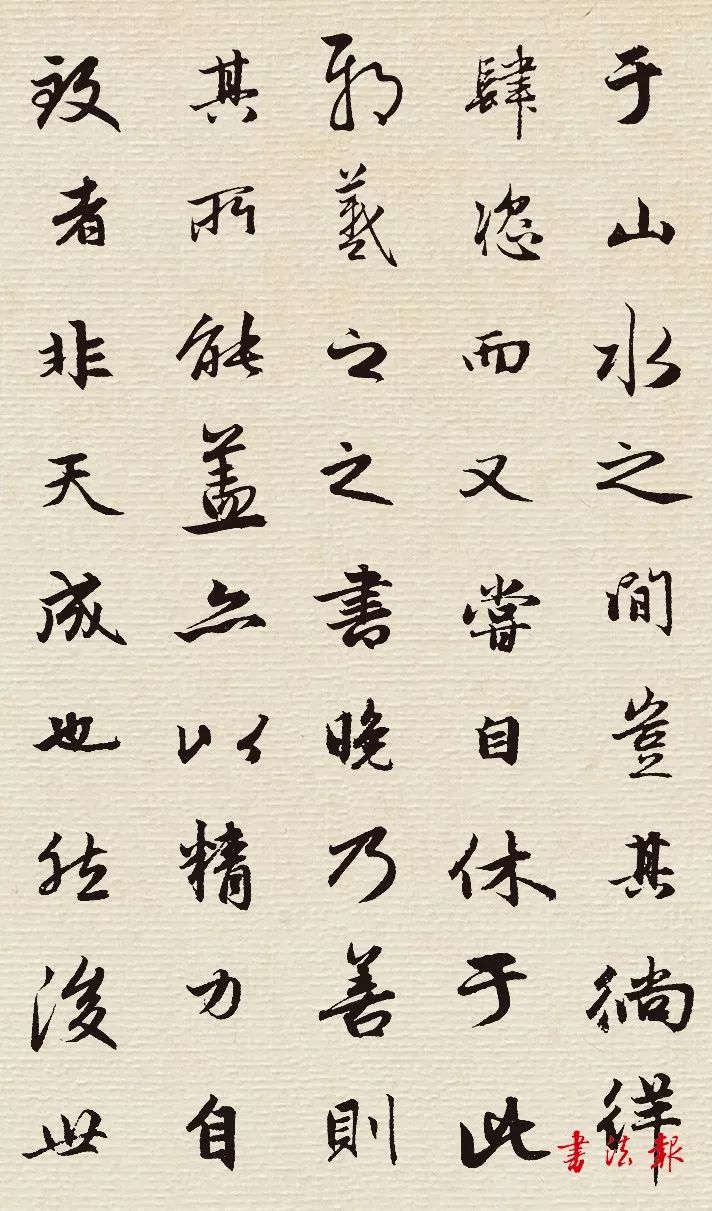 于山水之間豈其徜徉
肆恣而又嘗自休于此
邪羲之之書晚乃善則
其所能蓋亦以精力自
致者非天成也然後世
书法报